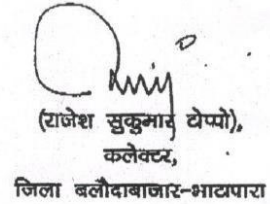 (राजेश सुकुमार टोप्पो),
कलेक्टर,
जिला बलौदाबाजार-भाटापारा